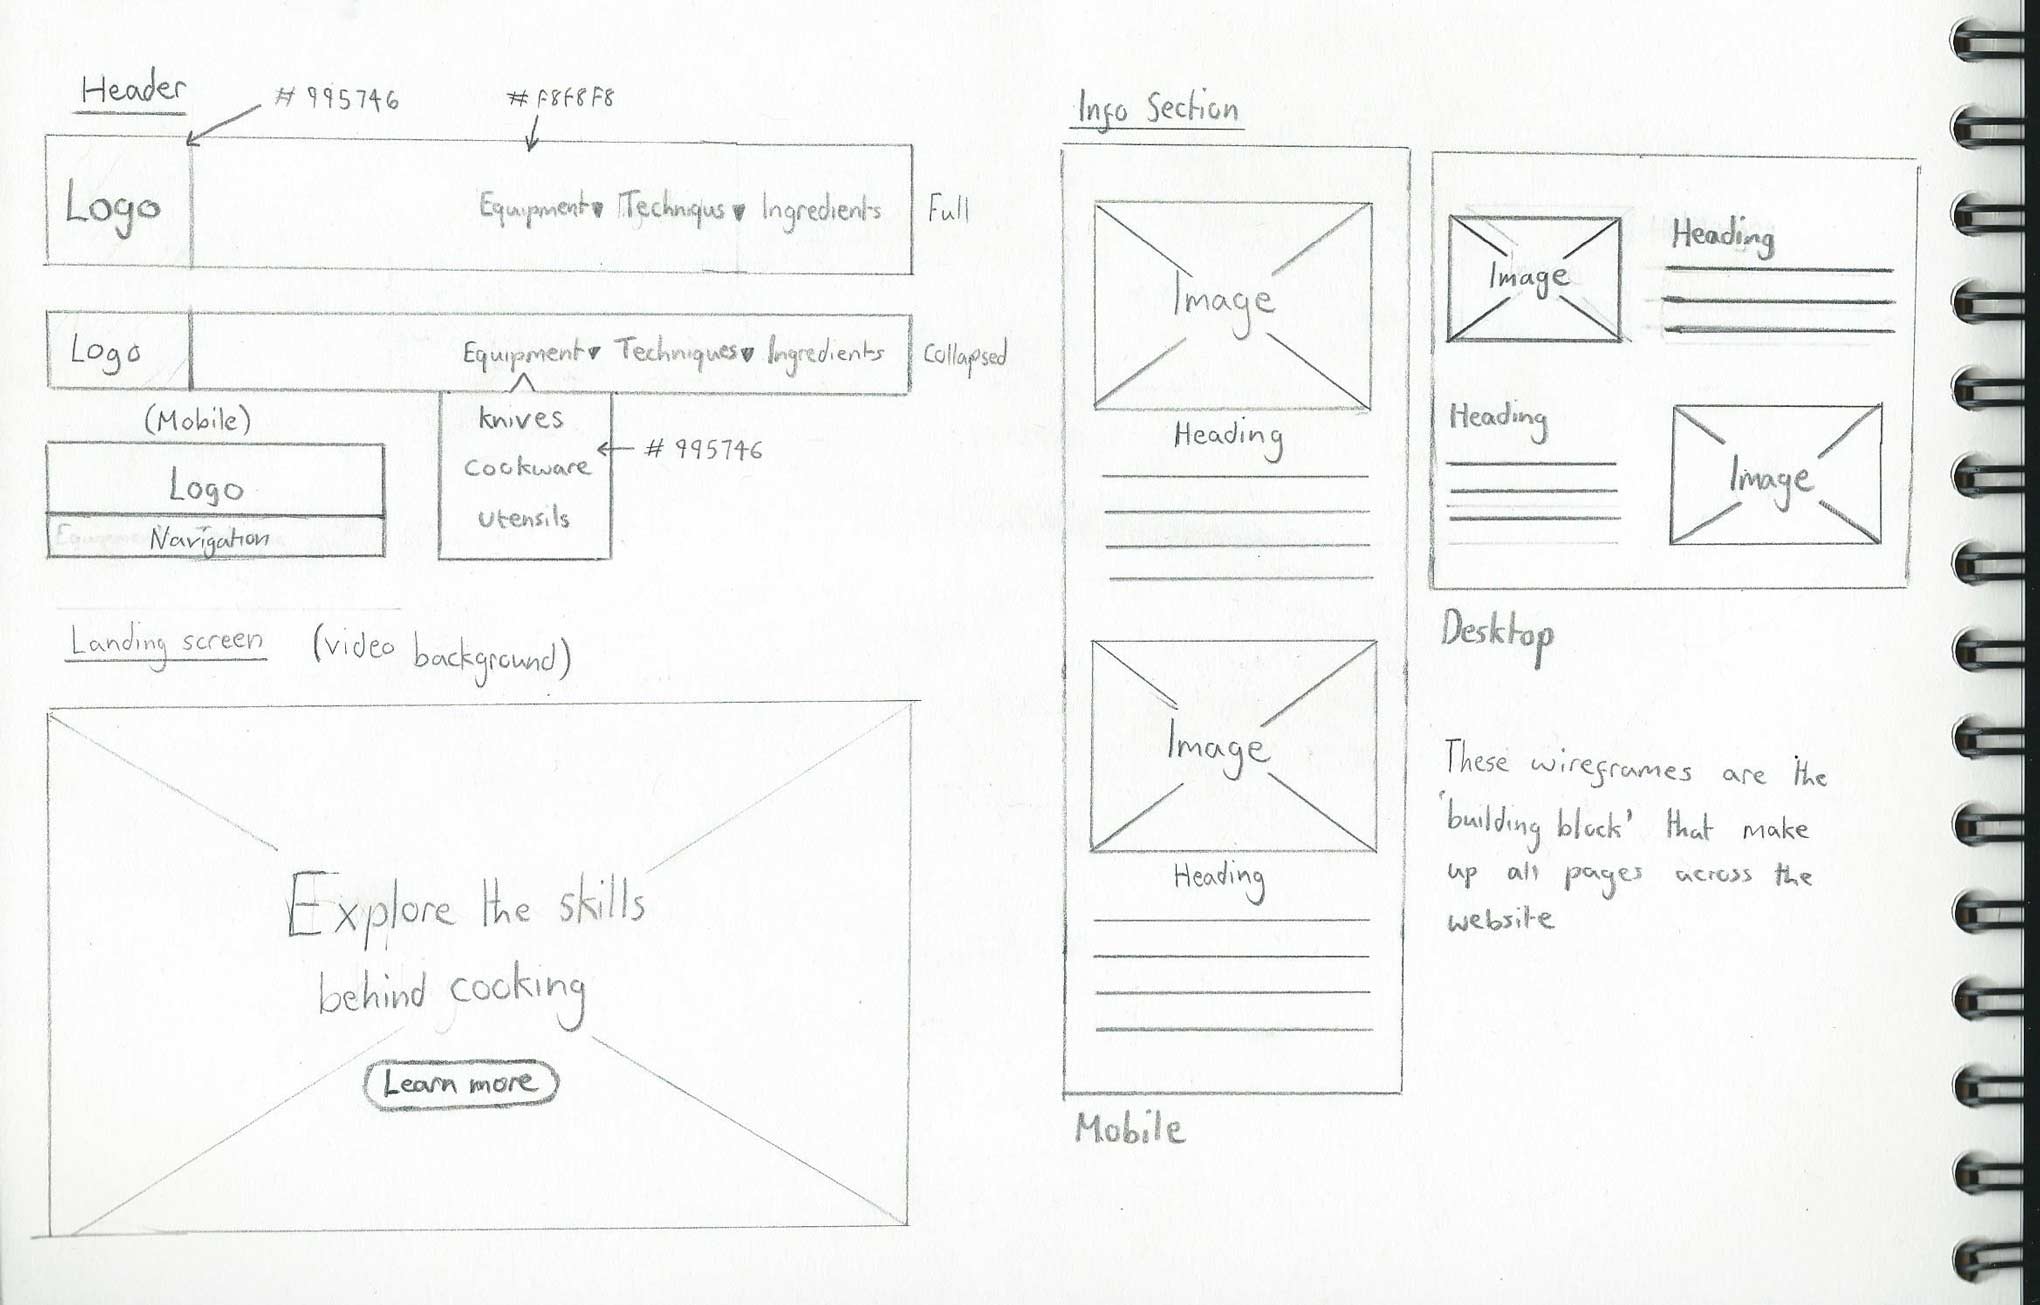 Header
# 995746
# F8F8F8
Logo
Equipment▾ Techniqus▾ Ingredients
Full
Logo
Equipment▾ Techniques▾ Ingredients
Collapsed
(Mobile)
Logo
Navigation
knives
cookware
utensils
# 995746
Landing screen (video background)
Explore the skills
behind cooking
Learn more
Info Section
Image
Heading
Image
Heading
Mobile
Image
Heading
Heading
Image
Desktop
These wireframes are the
'building block' that make
up all pages across the
website